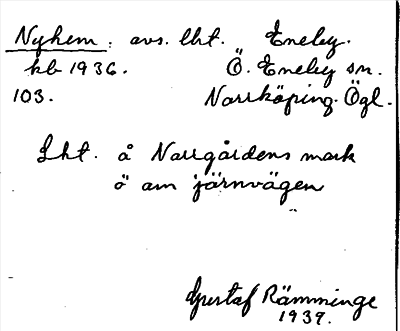 Nyhem: avs. lht. Eneby.
kb 1936. Ö. Eneby sn.
103. Norrköping. Ögl.
Lht. å Norrgårdens mark
ö om järnvägen
Gustaf Rämminge
1939.